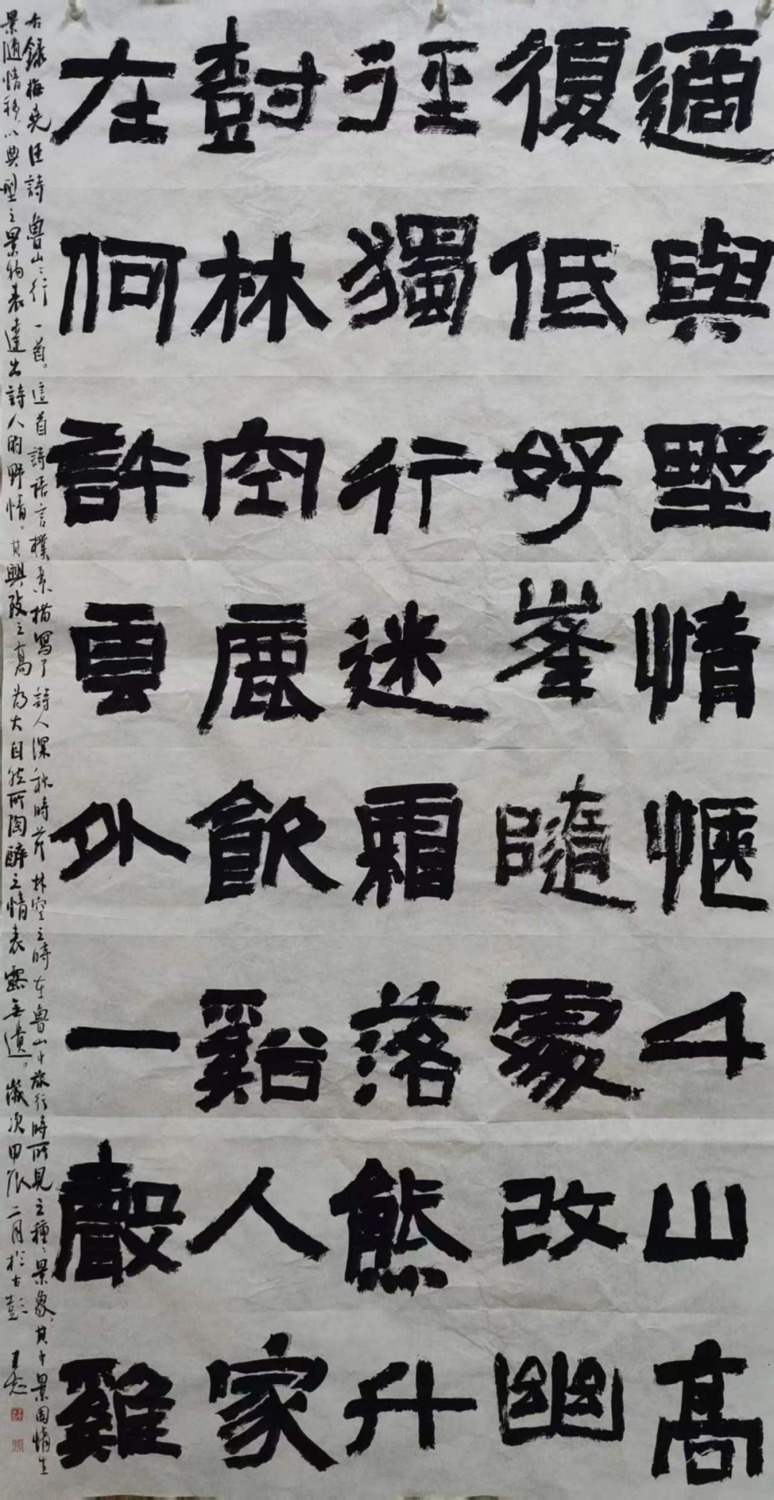 適與野情愜千山高
復低好峯隨處改幽
徑獨行迷霜落熊升
封林空鹿飲谿人家
在何許雲外一聲雞
右錄梅堯臣詩魯山山行一首。這首詩語言樸素描寫了詩人深秋時節林空之時在魯山中旅行時所見之種種景象其中景因情生
景隨情移以典型之景物表達出詩人的野情。其興致之高為大自然所陶醉之情表露無遺。歲次甲辰二月於古彭